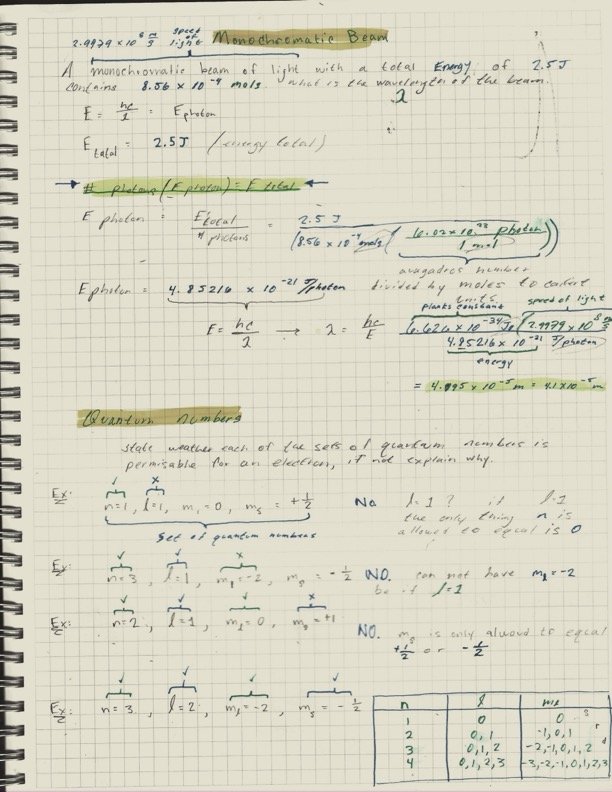 2.9979 x 10^8 m/s speed of light Monochromatic Beam
A monochromatic beam of light with a total Energy of 2.5 J
contains 8.56 x 10^-4 mols what is the wavelength of the beam.
λ
E = hc/λ = E photon
E total = 2.5 J (energy total)
→ # photons (E photon) = E total ←
E photon = E total / # photons = 2.5 J / (8.56 x 10^-4 mols (6.02 x 10^23 photon / 1 mol))
avagadros number
divided by moles to cancel
units
E photon = 4.85216 x 10^-21 J/photon
planks constant speed of light
E = hc/λ → λ = hc/E 6.626 x 10^-34 Js (2.9979 x 10^8 m/s) / 4.85216 x 10^-21 J/photon
energy
= 4.095 x 10^-5 m = 4.1 x 10^-5 m
Quantum numbers
state weather each of the sets of quantum numbers is
permisable for an electron, if not explain why.
Ex: n=1, l=1, ml=0, ms = +1/2 No l=1? if l=1
the only thing n is
allowed to equal is 0
set of quantum numbers
Ex: n=3, l=1, ml=-2, ms = -1/2 NO. can not have ml=-2
be if l=1
Ex: n=2, l=1, ml=0, ms=+1
NO. ms is only alowed to equal
+1/2 or -1/2
Ex: n=3, l=2, ml=-2, ms = -1/2
n l ml
1 0 0 s
2 0,1 -1,0,1
3 0,1,2 -2,-1,0,1,2 d
4 0,1,2,3 -3,-2,-1,0,1,2,3